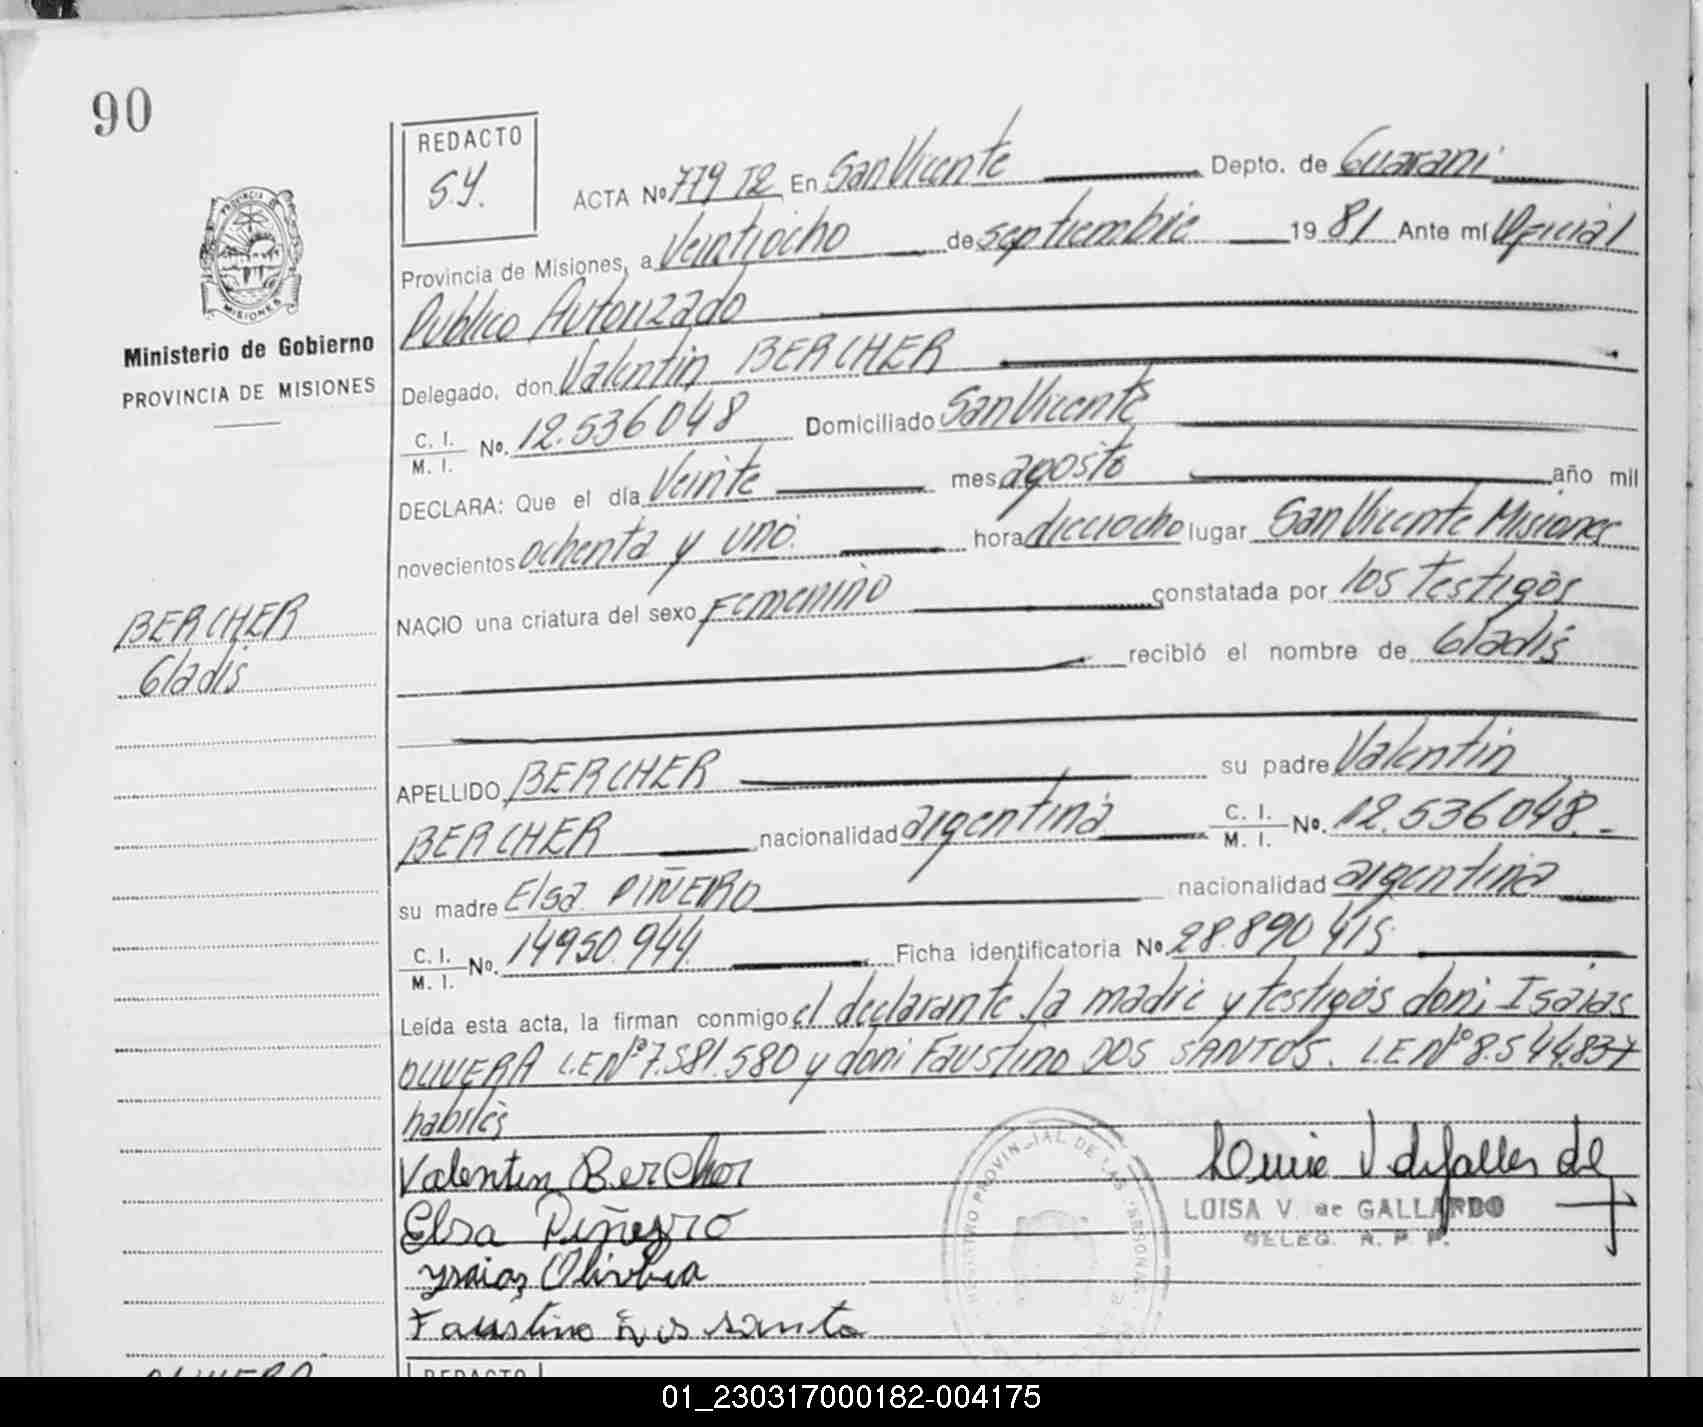 90
REDACTO
S.Y.
ACTA Nº 779 T2 En San Vicente Depto. de Guarani
Provincia de Misiones, a Veintiocho de septiembre 19 81 Ante mí Oficial
Publico Autorizado
Delegado, don Valentin BERCHER
C. I. / M. I. No. 12.536048 Domiciliado San Vicente
DECLARA: Que el día Veinte mes agosto año mil
novecientos ochenta y uno. hora dieciocho lugar San Vicente Misiones
NACIO una criatura del sexo Femenino constatada por los testigos
recibió el nombre de Gladis
APELLIDO BERCHER su padre Valentin
BERCHER nacionalidad argentina C. I. / M. I. Nº. 12.536048.-
su madre Elsa PIÑEIRO nacionalidad argentina
C. I. / M. I. No. 14950.944. Ficha identificatoria Nº. 28.890415
Leída esta acta, la firman conmigo el declarante la madre y testigos don: Isaias
OLIVERA L.E Nº 7.581.580 y don: Faustino DOS SANTOS. L.E Nº 8.544.837
habiles
Valentin Bercher
Elsa Piñeyro
Ysaias Olivera
Faustino dos santo
LUISA V. de GALLARDO
DELEG. R. P. P.
REGISTRO PROVINCIAL DE LAS PERSONAS
PROVINCIA DE
MISIONES
Ministerio de Gobierno
PROVINCIA DE MISIONES
BERCHER
Gladis
OLIVERA
REDACTO
01_230317000182-004175